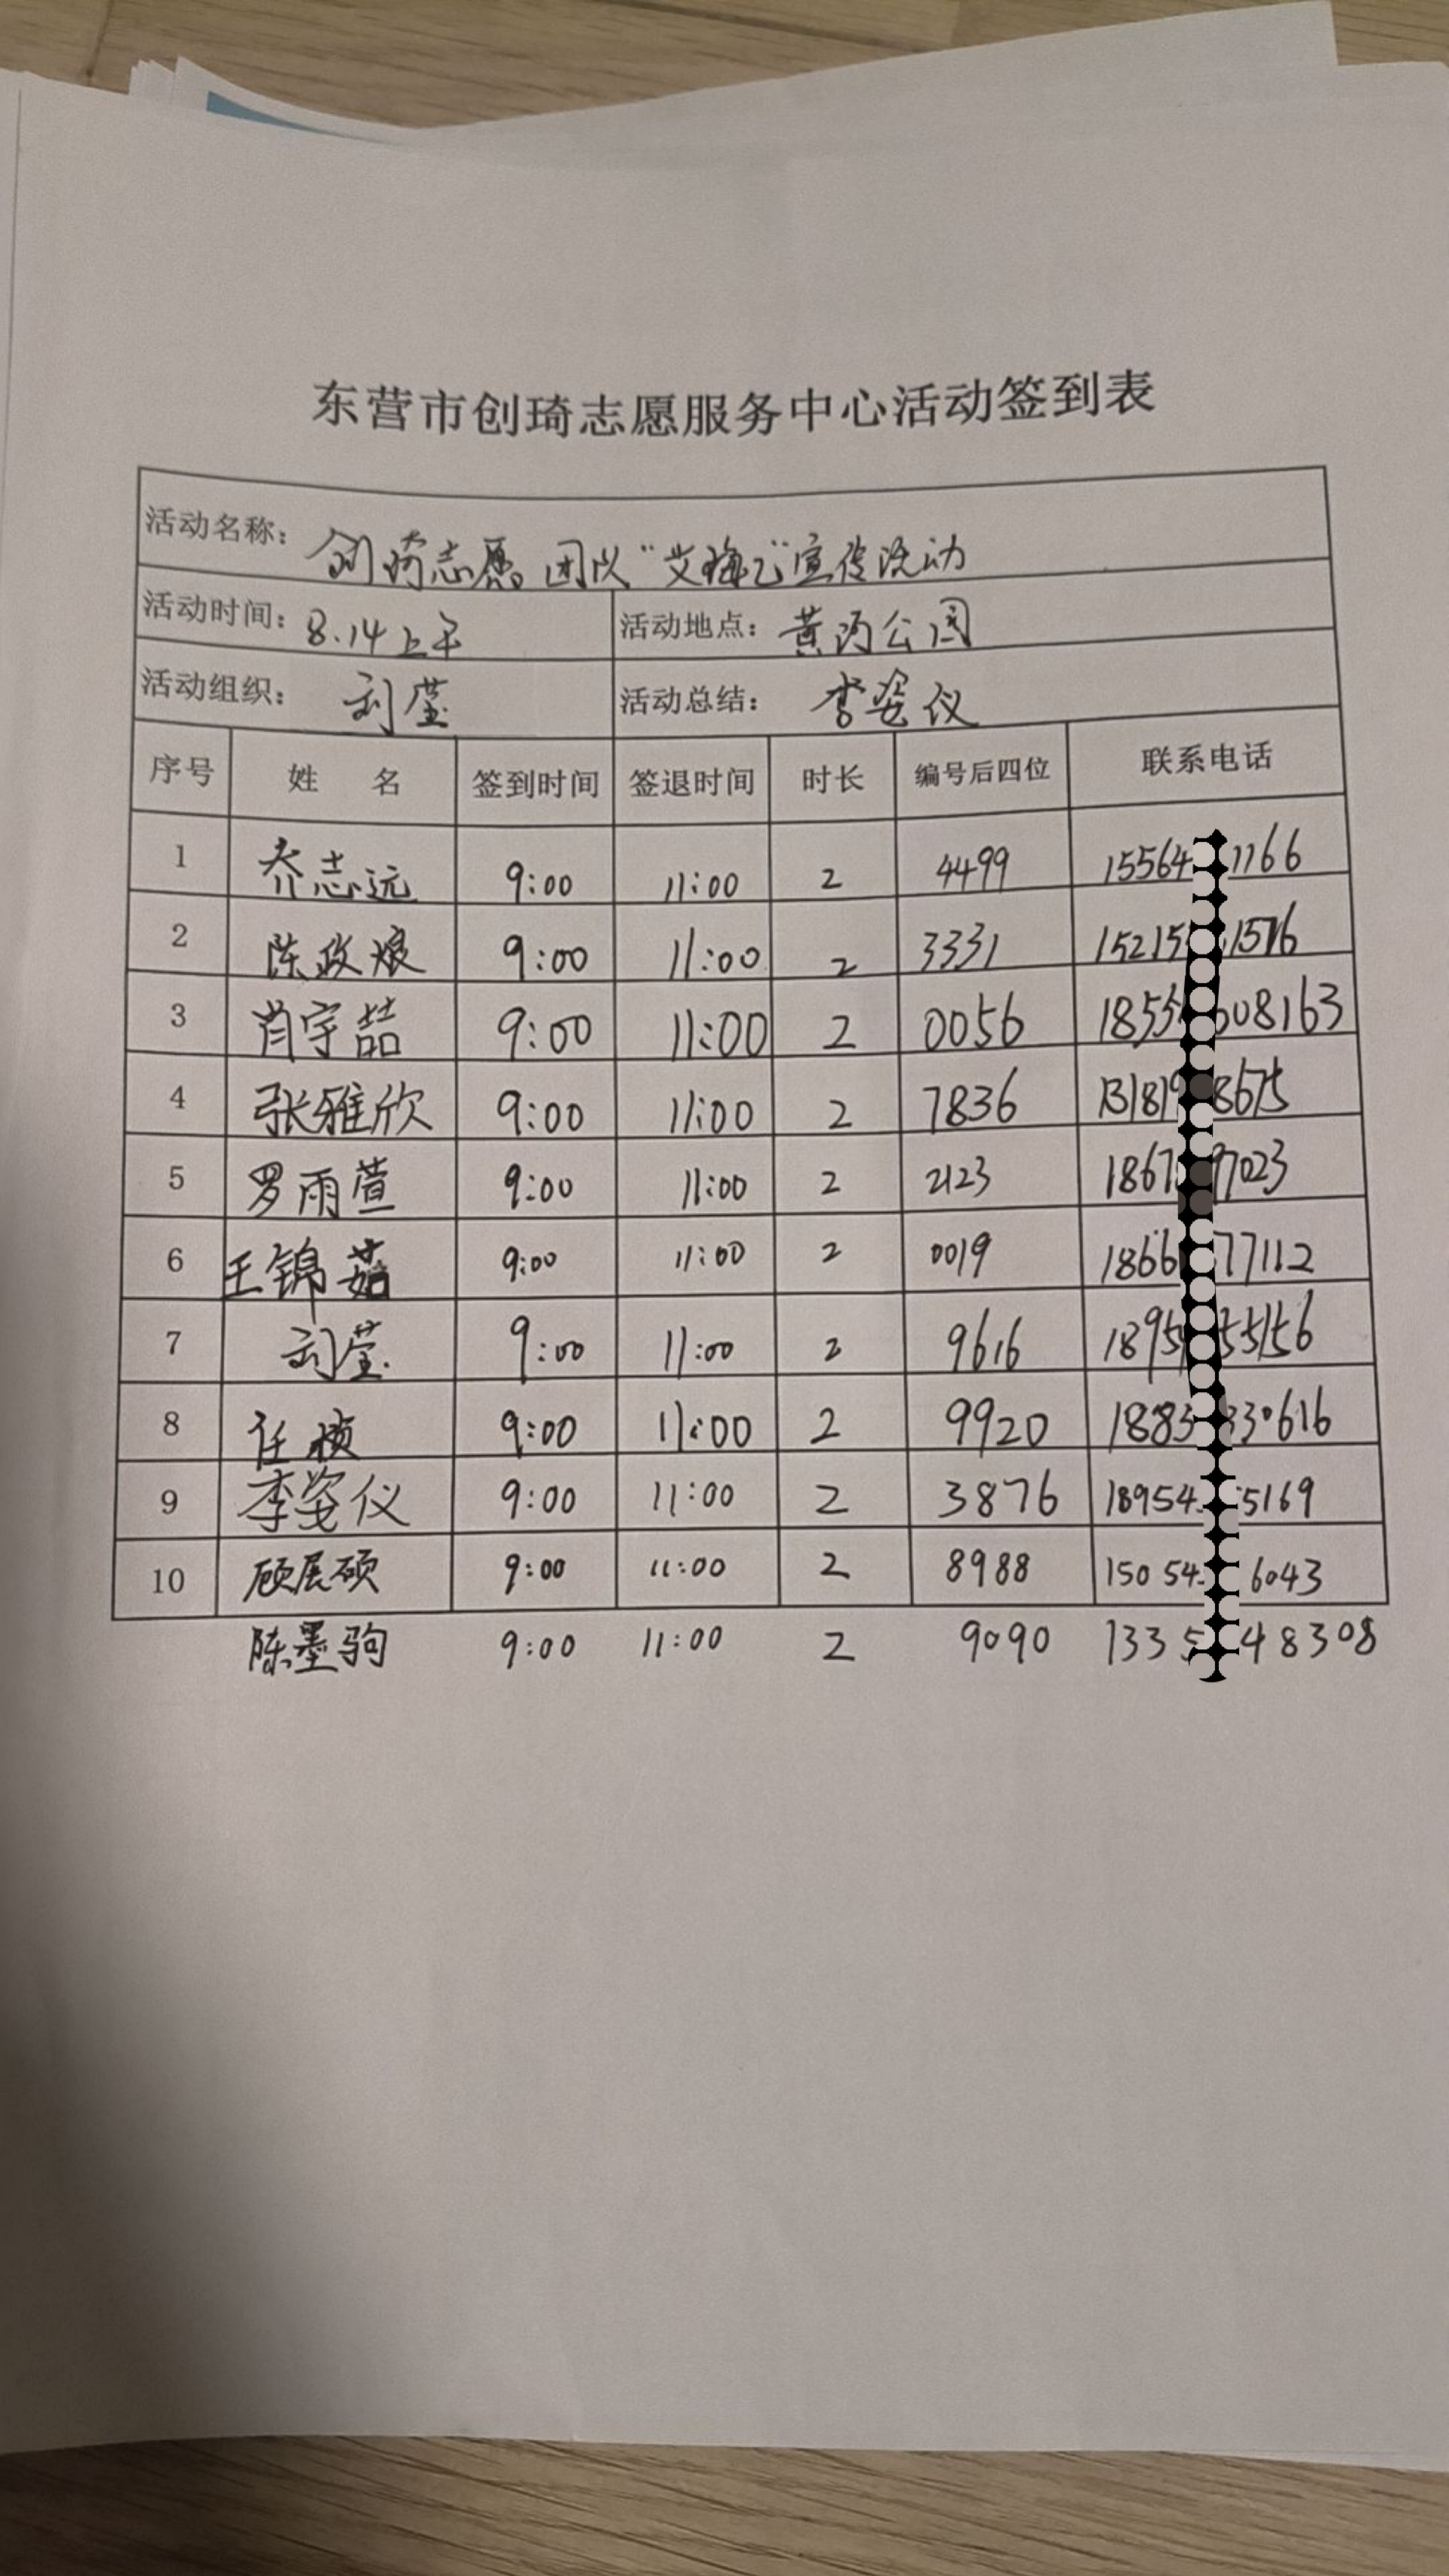 东营市创琦志愿服务中心活动签到表
活动名称： 创琦志愿团队“艾梅乙”宣传活动
活动时间： 8.14上午 活动地点： 黄河公园
活动组织： 刘莹 活动总结： 李姿仪
序号 姓 名 签到时间 签退时间 时长 编号后四位 联系电话
1 乔志远 9:00 11:00 2 4499 15564 1166
2 陈政烺 9:00 11:00 2 3331 15215 1576
3 肖宇喆 9:00 11:00 2 0056 1855 608163
4 张雅欣 9:00 11:00 2 7836 131819 8675
5 罗雨萱 9:00 11:00 2 2123 1867 97023
6 王锦茹 9:00 11:00 2 0019 1866 77112
7 刘莹 9:00 11:00 2 9616 1895 55156
8 任桢 9:00 11:00 2 9920 1883 330616
9 李姿仪 9:00 11:00 2 3876 18954 5169
10 顾展硕 9:00 11:00 2 8988 15054 6043
陈墨驹 9:00 11:00 2 9090 1335 48308